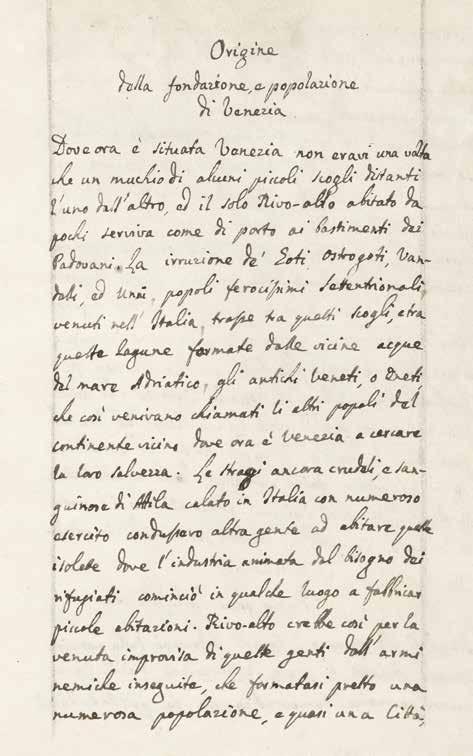 Origine
della fondazione, e popolazione
di Venezia
Dove ora è situata Venezia non eravi una volta
che un muchio di alcuni picoli scogli distanti
l'uno dall'altro, ed il solo Rivo-alto abitato da
pochi serviva come di porto ai bastimenti dei
Padovani. La irruzione de' Goti, Ostrogoti, Van-
dali, ed Unni, popoli ferocissimi Setentrionali,
venuti nell'Italia, trasse tra questi scogli, e tra
queste lagune formate dalle vicine acque
del mare Adriatico, gli antichi Veneti, o Eneti,
che così venivano chiamati li altri popoli del
continente vicino dove ora è Venezia a cercare
la loro salvezza. Le stragi ancora crudeli, e san-
guinose di Attila calato in Italia con numeroso
esercito condussero altra gente ad abitare queste
isolete dove l'industria animata dal bisogno dei
rifugiati cominciò in qualche luogo a fabbricar
piccole abitazioni. Rivo-alto crebbe così per la
venuta improvisa di queste genti dall'armi
nemiche inseguite, che formatasi presto una
numerosa popolazione, e quasi una Città,